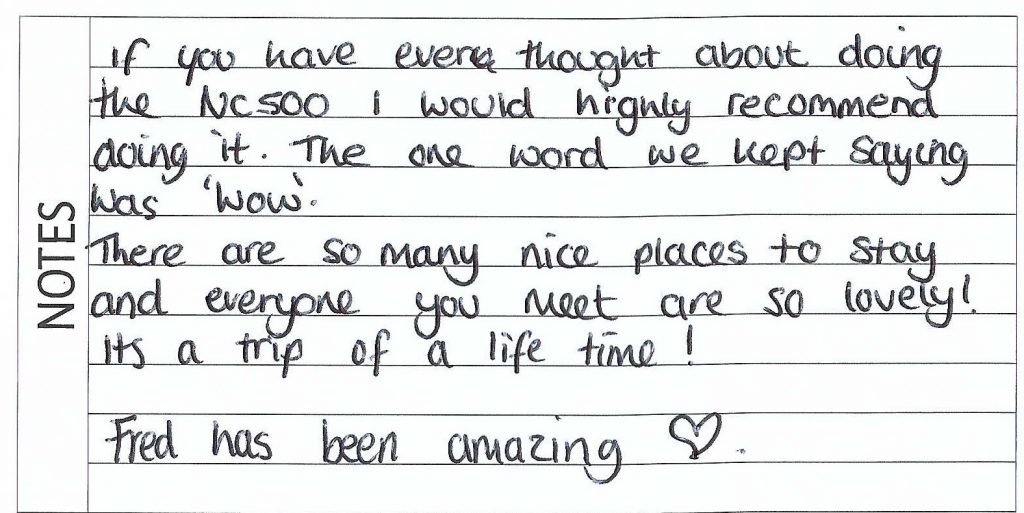 NOTES
If you have ever thought about doing
the NC500 I would highly recommend
doing it. The one word we kept saying
was 'Wow'.
There are so many nice places to stay
and everyone you meet are so lovely!
Its a trip of a life time!
Fred has been amazing ♡.